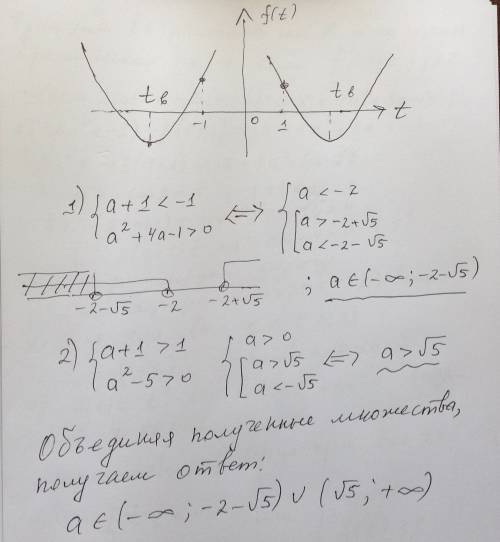 f(t)
tв tв
-1 0 1 t
1) { a + 1 < -1 <=> { a < -2
a² + 4a - 1 > 0 [ a > -2 + √5
a < -2 - √5
-2-√5 -2 -2+√5 ; a ∈ (-∞; -2-√5)
2) { a+1 > 1 { a > 0
a² - 5 > 0 [ a > √5 <=> a > √5
a < -√5
Объединяя полученные множества,
получаем ответ:
a ∈ (-∞; -2-√5) ∪ (√5; +∞)